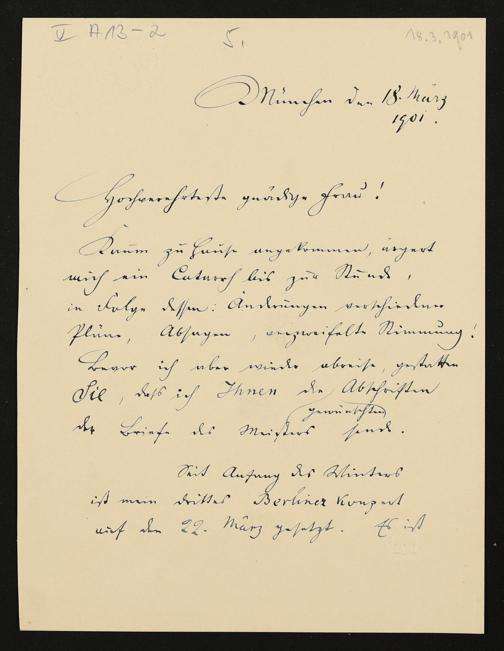 V A 13-2
5.
18.3.1901
München den 18. März
1901.
Hochverehrteste gnädige Frau!
Kaum zu Hause angekommen, ärgert
mich ein Catarrh bis zur Stunde,
in Folge dessen: Änderungen verschiedener
Pläne, Absagen, verzweifelte Stimmung!
Bevor ich aber wieder abreise, gestatten
Sie, dass ich Ihnen die Abschriften
gewünschten
der Briefe des Meisters sende.
Seit Anfang des Winters
ist mein drittes Berliner Konzert
auf den 22. März gesetzt. Es ist